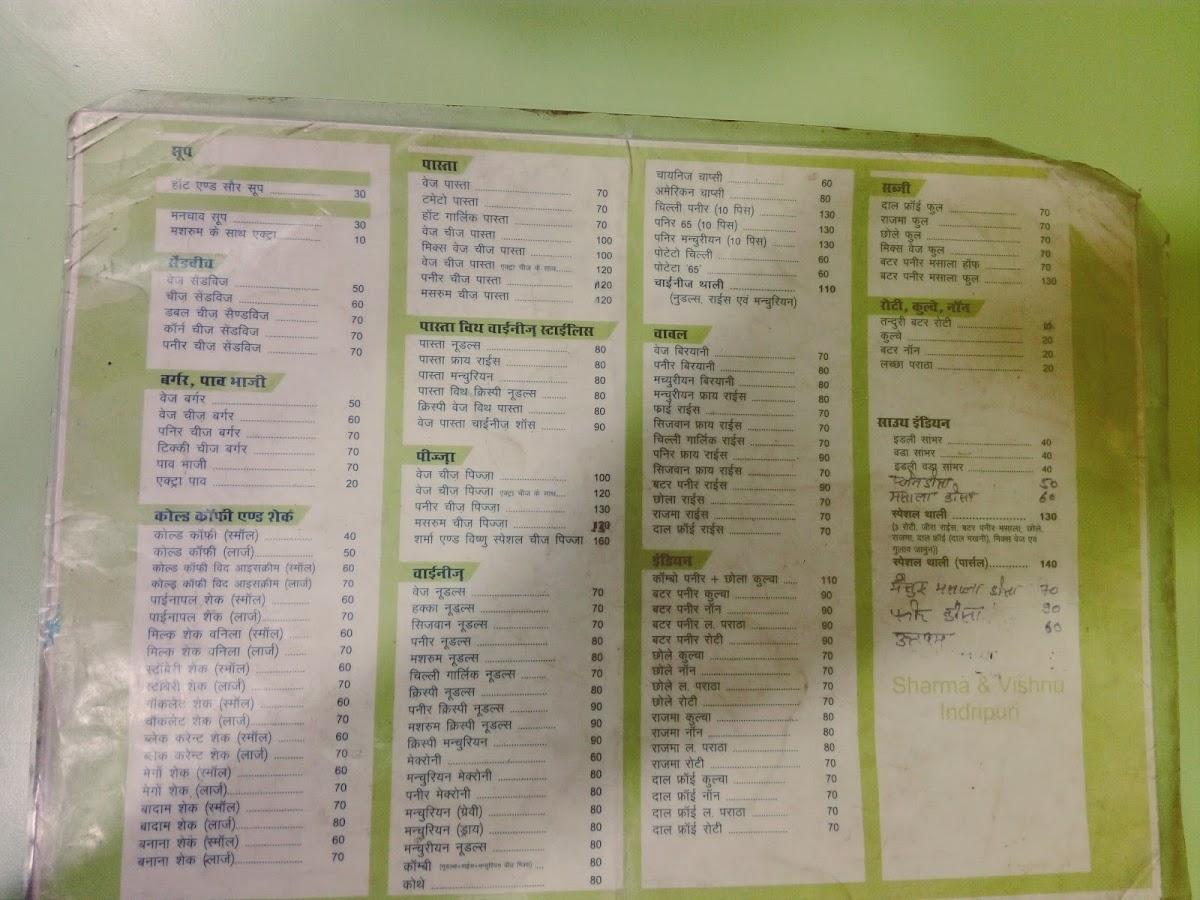 सूप
हॉट एण्ड सौर सूप 30
मनचाव सूप 30
मशरुम के साथ एक्ट्रा 10
सैंडवीच
वेज सेंडविज 50
चीज सेंडविज 60
डबल चीज सैण्डविज 70
कॉर्न चीज सेंडविज 70
पनीर चीज सेंडविज 70
बर्गर, पाव भाजी
वेज बर्गर 50
वेज चीज बर्गर 60
पनिर चीज बर्गर 70
टिक्की चीज बर्गर 70
पाव भाजी 70
एक्ट्रा पाव 20
कोल्ड कॉफी एण्ड शेक
कोल्ड कॉफी (स्मॉल) 40
कोल्ड कॉफी (लार्ज) 50
कोल्ड कॉफी विद आइसक्रीम (स्मॉल) 60
कोल्ड कॉफी विद आइसक्रीम (लार्ज) 70
पाईनापल शेक (स्मॉल) 60
पाईनापल शैक (लार्ज) 70
मिल्क शेक वनिला (स्मॉल) 60
मिल्क शेक वनिला (लार्ज) 70
स्टॉबेरी शेक (स्मॉल) 60
स्टॉबेरी शेक (लार्ज) 70
चॉकलेट शेक (स्मॉल) 60
चॉकलेट शेक (लार्ज) 70
ब्लेक करेन्ट शेक (स्मॉल) 60
ब्लेक करेन्ट शेक (लार्ज) 70
मेगों शेक (स्मॉल) 60
मेगों शेक (लार्ज) 70
बादाम शेक (स्मॉल) 70
बादाम शेक (लार्ज) 80
बनाना शेक (स्मॉल) 60
बनाना शेक (लार्ज) 70
पास्ता
वेज पास्ता 70
टमेटो पास्ता 70
हॉट गार्लिक पास्ता 70
वेज चीज पास्ता 100
मिक्स वेज चीज पास्ता 100
वेज चीज पास्ता एक्ट्रा चीज के साथ 120
पनीर चीज पास्ता 120
मसरुम चीज पास्ता 120
पास्ता विथ चाईनीज् स्टाईलिस
पास्ता नूडल्स 80
पास्ता फ्राय राईस 80
पास्ता मन्चुरियन 80
पास्ता विथ क्रिस्पी नूडल्स 80
क्रिस्पी वेज विथ पास्ता 80
वेज पास्ता चाईनीज शॉस 90
पीज्जा
वेज चीज पिज्जा 100
वेज चीज पिज्जा एक्ट्रा चीज के साथ 120
पनीर चीज पिज्जा 130
मसरुम चीज पिज्जा
शर्मा एण्ड विष्णु स्पेशल चीज पिज्जा 160
चाईनीज्
वेज नूडल्स 70
हक्का नूडल्स 70
सिजवान नूडल्स 70
पनीर नूडल्स 80
मशरुम नूडल्स 80
चिल्ली गार्लिक नूडल्स 70
क्रिस्पी नूडल्स 80
पनीर क्रिस्पी नूडल्स 90
मशरुम क्रिस्पी नूडल्स 90
क्रिस्पी मन्चुरियन 90
मेक्रोनी 60
मन्चुरियन मेक्रोनी 80
पनीर मेक्रोनी 80
मन्चुरियन (ग्रेवी) 80
मन्चुरियन (ड्राय) 80
मन्चुरीयन नूडल्स 80
कॉम्बी (नुडल्स+राईस+मन्चुरियन चीज मिक्स) 80
कोथे 80
चायनिज चाप्सी 60
अमेरिकन चाप्सी 80
चिल्ली पनीर (10 पिस) 130
पनिर 65 (10 पिस) 130
पनिर मन्चुरीयन (10 पिस) 130
पोटेटो चिल्ली 60
पोटेटा '65' 60
चाईनीज थाली 110
(नुडल्स, राईस एवं मन्चुरियन)
चावल
वेज बिरयानी 70
पनीर बिरयानी 80
मच्युरीयन बिरयानी 80
मन्चुरीयन फ्राय राईस 80
फाई राईस 70
सिजवान फ्राय राईस 70
चिल्ली गार्लिक राईस 70
पनिर फ्राय राईस 90
सिजवान फ्राय राईस 70
बटर पनीर राईस 90
छोला राईस 70
राजमा राईस 70
दाल फ्रॉई राईस 70
इंडियन
कॉम्बो पनीर + छोला कुल्चा 110
बटर पनीर कुल्चा 90
बटर पनीर नॉन 90
बटर पनीर ल. पराठा 90
बटर पनीर रोटी 90
छोले कुल्चा 70
छोले नॉन 70
छोले ल. पराठा 70
छोले रोटी 70
राजमा कुल्चा 80
राजमा नॉन 80
राजमा ल. पराठा 80
राजमा रोटी 70
दाल फ्रॉई कुल्चा 70
दाल फ्रॉई नॉन 70
दाल फ्रॉई ल. पराठा 70
दाल फ्रॉई रोटी 70
सब्जी
दाल फ्रॉई फुल 70
राजमा फुल 70
छोले फुल 70
मिक्स वेज फुल 70
बटर पनीर मसाला हॉफ 70
बटर पनीर मसाला फुल 130
रोटी, कुल्चे, नॉन
तन्दुरी बटर रोटी
कुल्चे 20
बटर नॉन 20
लच्छा पराठा 20
साउथ इंडियन
इडली सांभर 40
वडा सांभर 40
इडली वडा सांभर 40
प्लेन डोसा 50
मसाला डोसा 60
स्पेशल थाली 130
(3 रोटी, जीरा राईस, बटर पनीर मसाला, छोले,
राजमा, दाल फ्रॉई (दाल मखनी), मिक्स वेज एवं
गुलाब जामुन))
स्पेशल थाली (पार्सल) 140
मैसुर मसाला डोसा 70
पनीर डोसा 90
उत्तपम 60
Sharma & Vishnu
Indripuri